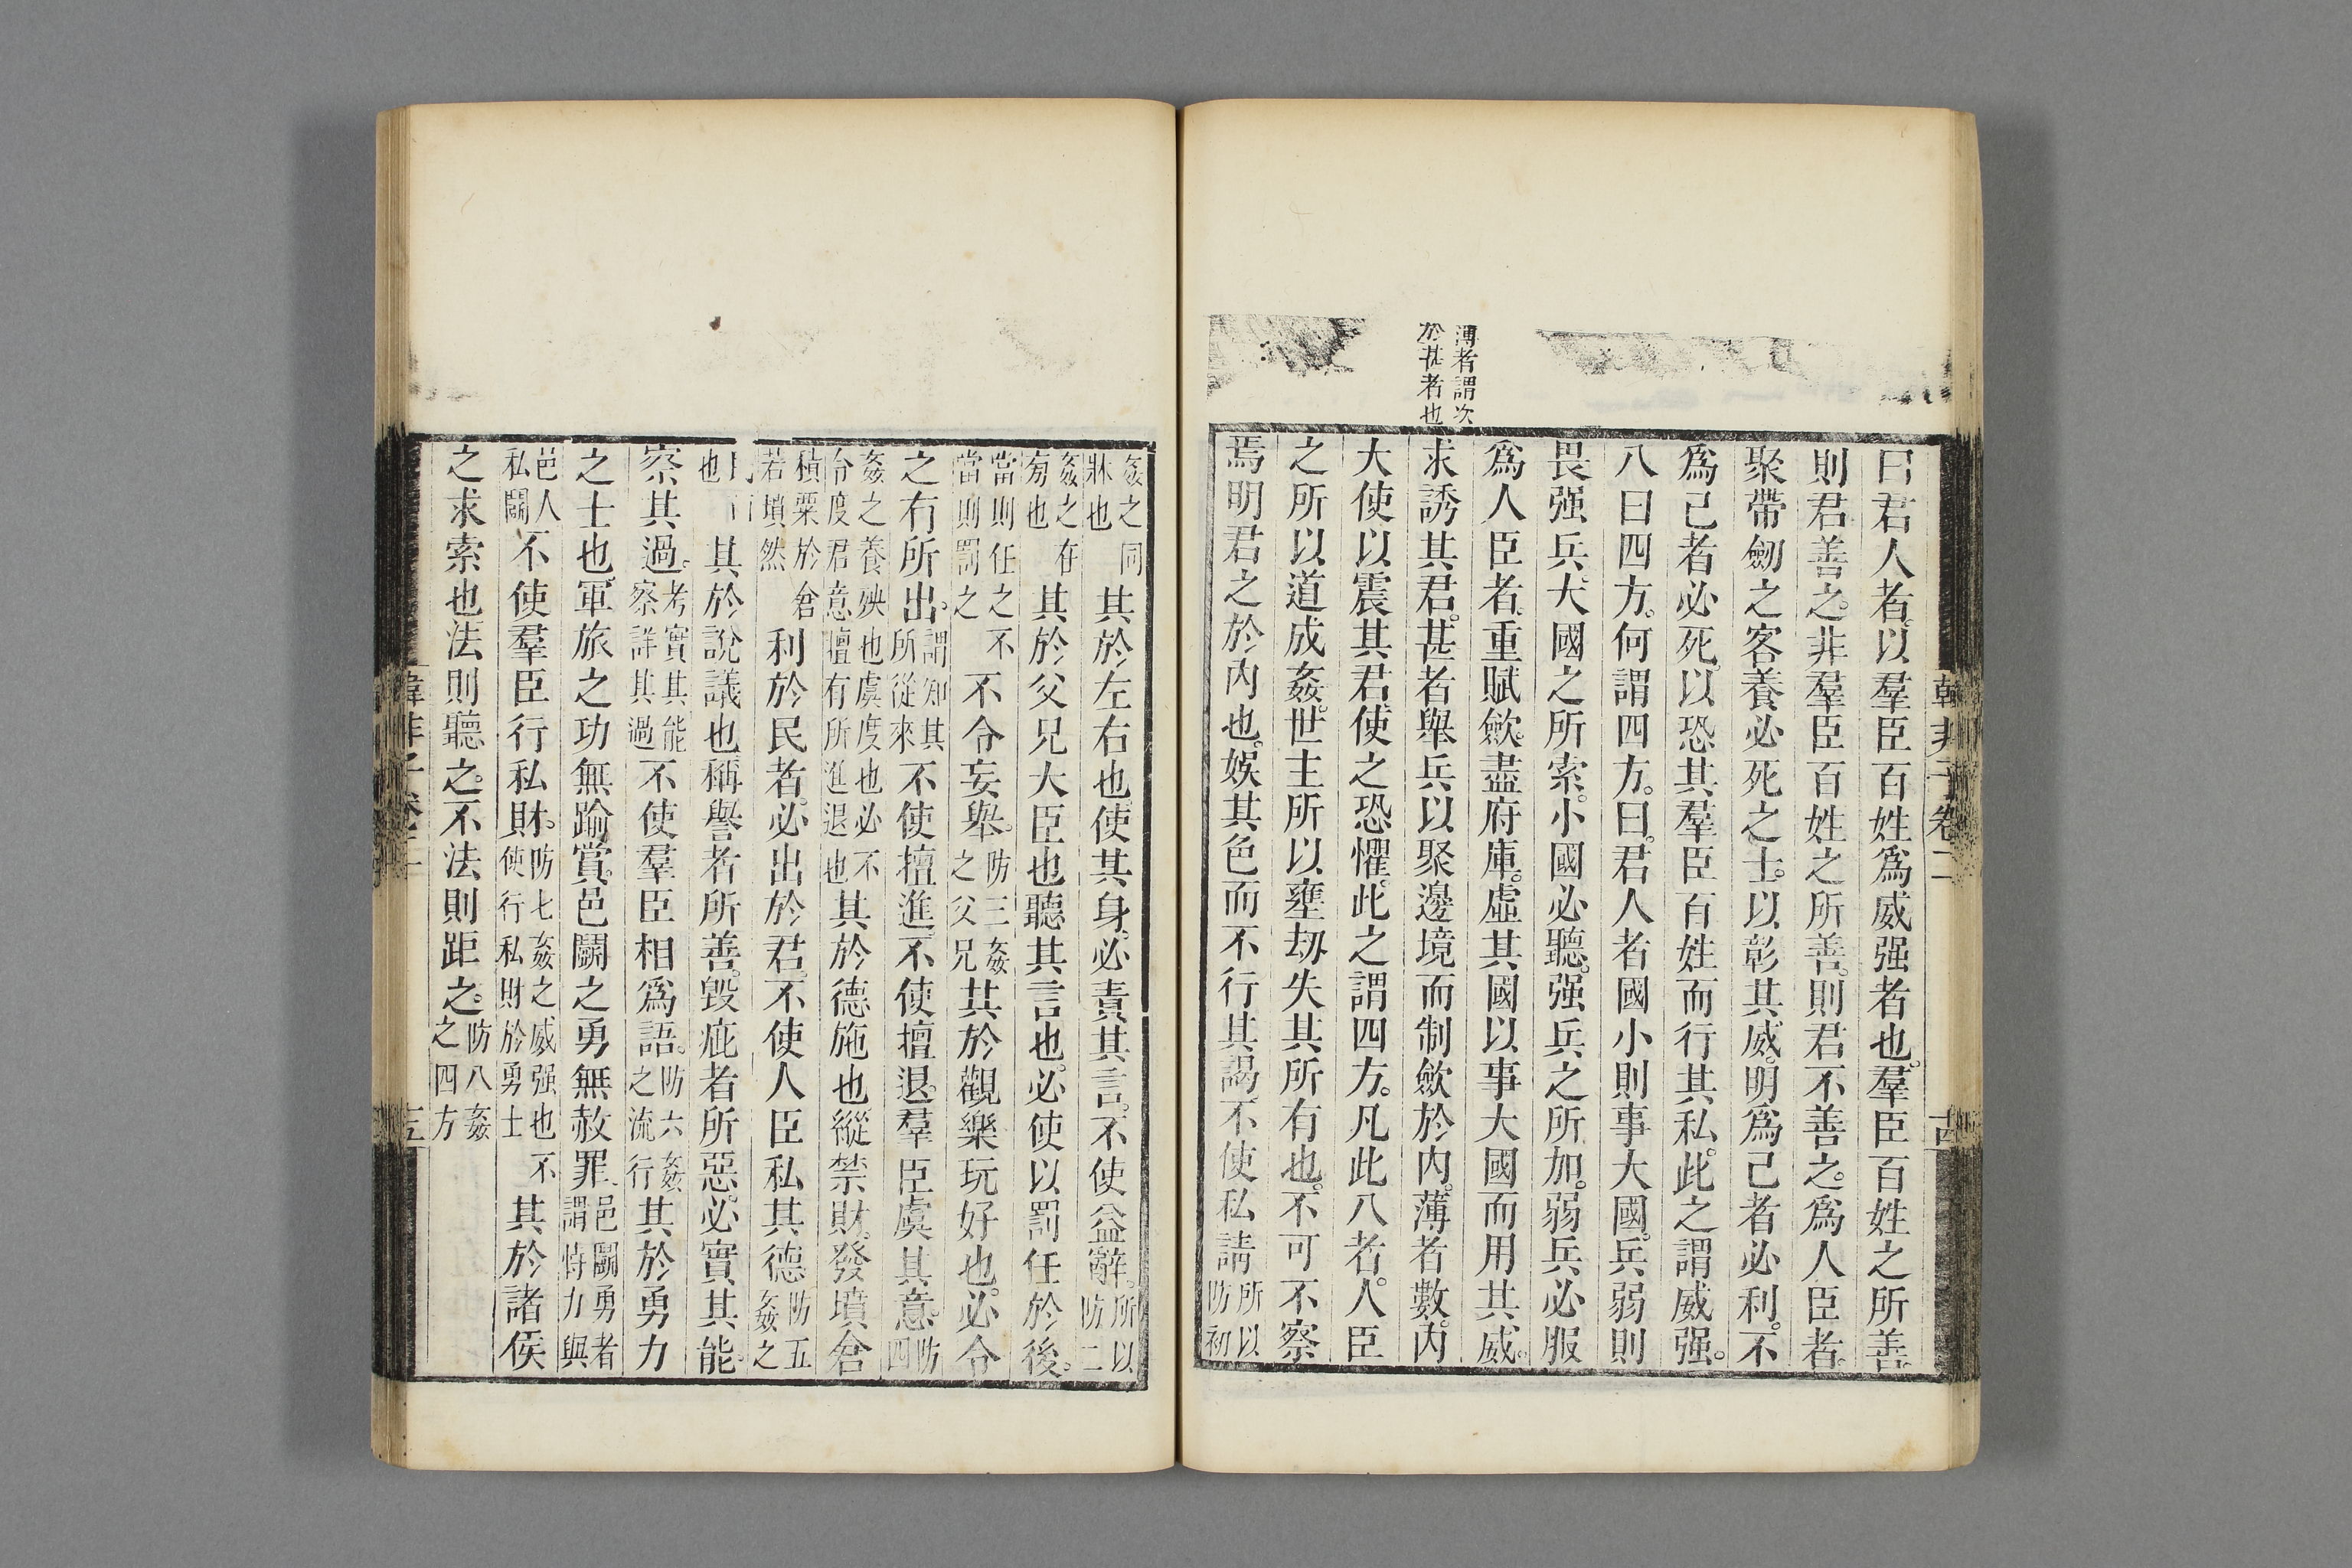 韓非子卷二
十四
薄者謂次
於甚者也
曰君人者以羣臣百姓爲威强者也。羣臣百姓之所善。
則君善之。非羣臣百姓之所善。則君不善之。爲人臣者。
聚帶劒之客養必死之士。以彰其威。明爲己者必利。不
爲己者必死。以恐其羣臣百姓而行其私。此之謂威强。
八曰四方。何謂四方。曰。君人者國小則事大國。兵弱則
畏强兵。大國之所索。小國必聽。强兵之所加。弱兵必服
爲人臣者。重賦歛。盡府庫。虛其國以事大國而用其威。
求誘其君。甚者舉兵以聚邊境而制歛於內。薄者數內
大使以震其君。使之恐懼。此之謂四方。凡此八者。人臣
之所以道成姦。世主所以壅劫失其所有也。不可不察
焉明君之於內也。娛其色而不行其謁不使私請所以防初
姦之同牀也其於左右也。使其身。必責其言。不使益辭。所以防二
姦之在旁也其於父兄大臣也聽其言也。必使以罰任於後。
當則任之不當則罰之不令妄舉。防三姦之父兄其於觀樂玩好也。必令
之有所出。謂知其所從來不使擅進。不使擅退。羣臣虞其意。防四
姦之養殃也虞度也必不令度君意擅有所進退也其於德施也縱禁財。發墳倉
積粟於倉若墳然利於民者。必出於君。不使人臣私其德防五姦之
也其於說議也稱譽者所善。毀疵者所惡。必實其能。
察其過。考實其能察詳其過不使羣臣相爲語。防六姦之流行其於勇力
之士也。軍旅之功無踰賞。邑鬭之勇無赦罪。邑鬭勇者謂恃力與
邑人私鬭不使羣臣行私財。防七姦之威强也不使行私財於勇士其於諸侯
之求索也法則聽之。不法則距之。防八姦之四方
韓非子卷二
十五